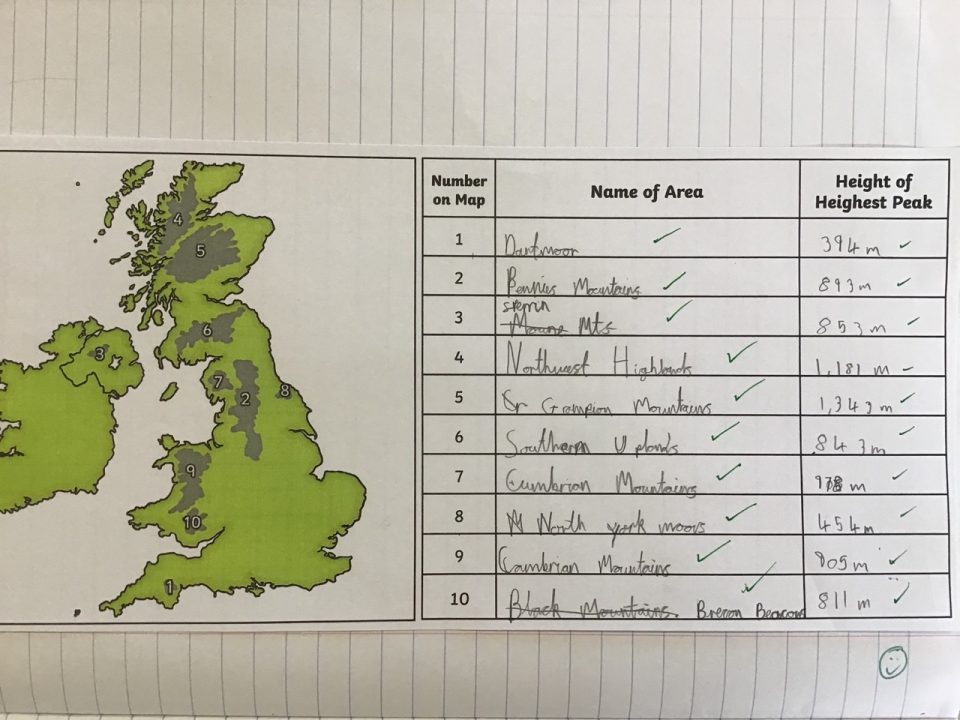 Number on Map
Name of Area
Height of Heighest Peak
1 Dartmoor 394 m
2 Mountains 893 m
sperrin
3 Mourne Mts 853 m
4 Northwest Highlands 1,181 m
5 Gr Grampion Mountains 1,343 m
6 Southern Uplands 843 m
7 Cumbrian Mountains 978 m
8 North york moors 454 m
9 Cambrian Mountains 805 m
10 Black Mountains. Brecon Beacons 811 m
4
5
6
3
7 2 8
9
10
1